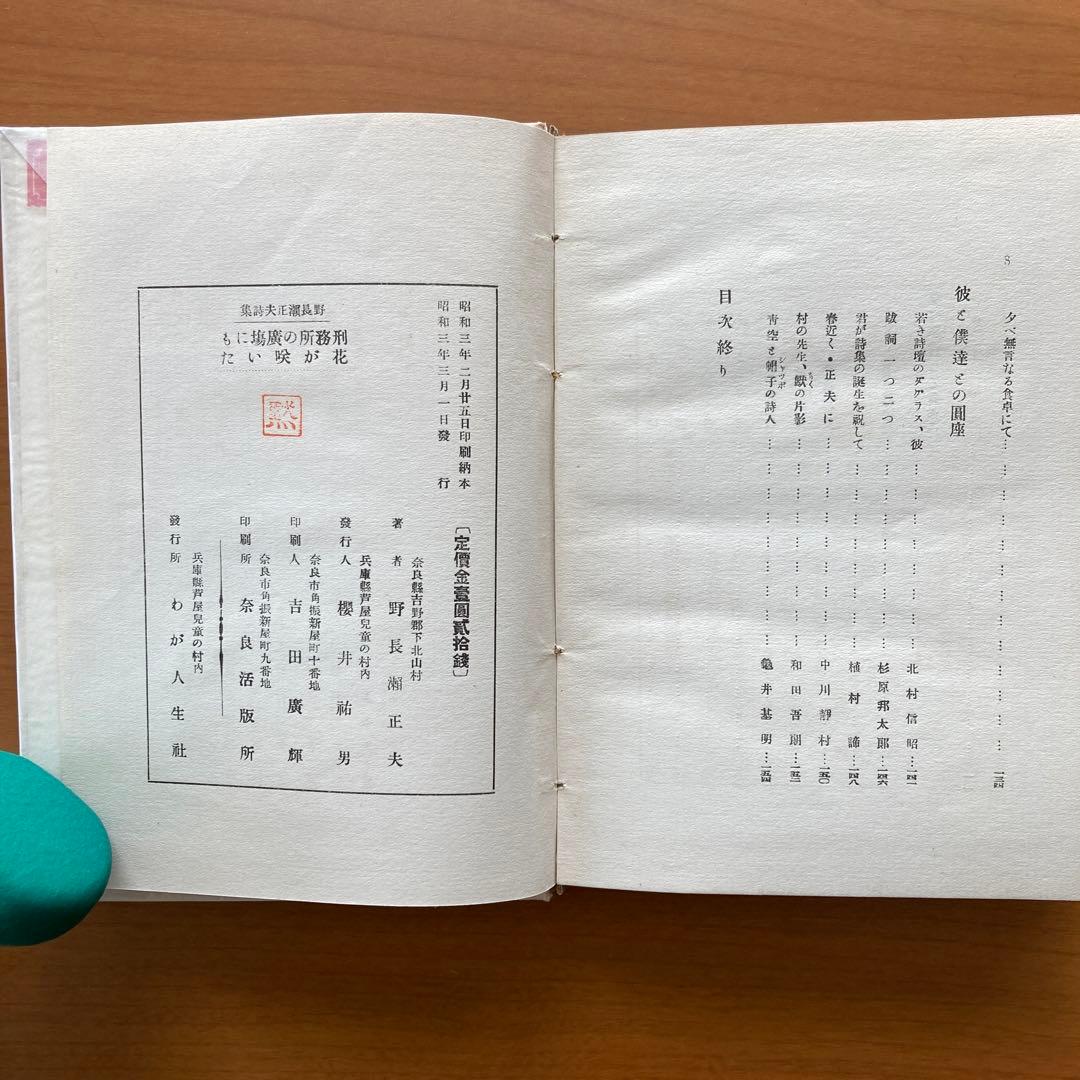 8
夕べ無言なる食卓にて………………………………一三四
彼と僕達との圓座
若き詩壇のダグラス、彼………………………北村信昭…一四一
跋詞一つ二つ………………………杉原邦太郎…一四六
君が詩集の誕生を祝して………………………植村諦…一四八
春近く・正夫に………………………中川靜村…一五〇
村の先生、獸の片影………………………和田吾朗…一五二
靑空と帽子の詩人………………………龜井基明…一五四
シヤツポ
目次終り
野長瀨正夫詩集
刑務所の廣塲にも
花が咲いた
昭和三年二月廿五日印刷納本
昭和三年三月一日發行
〔定價金壹圓貳拾錢〕
奈良縣吉野郡下北山村
著者 野長瀨正夫
兵庫縣芦屋兒童の村内
發行人 櫻井祐男
奈良市角振新屋町十番地
印刷人 吉田廣輝
奈良市角振新屋町九番地
印刷所 奈良活版所
兵庫縣芦屋兒童の村内
發行所 わが人生社